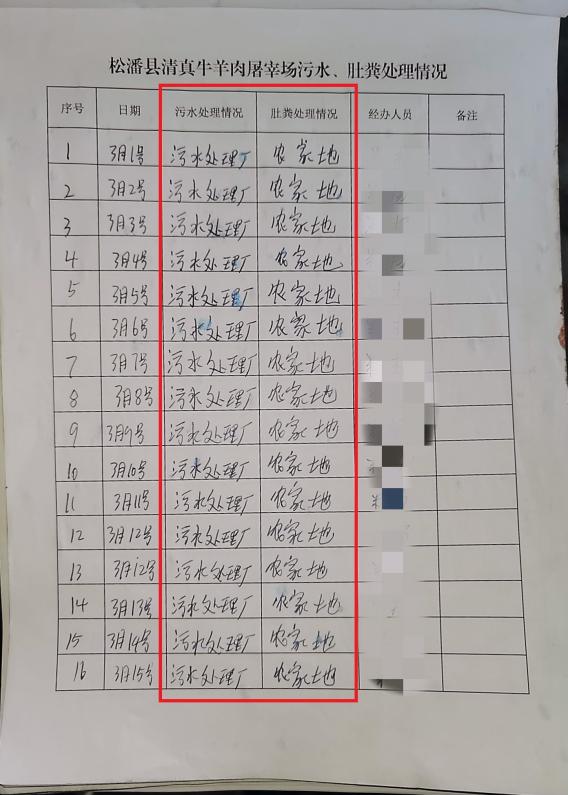 松潘县清真牛羊肉屠宰场污水、肚粪处理情况
序号 日期 污水处理情况 肚粪处理情况 经办人员 备注
1 3月1号 污水处理厂 农家地
2 3月2号 污水处理厂 农家地
3 3月3号 污水处理厂 农家地
4 3月4号 污水处理厂 农家地
5 3月5号 污水处理厂 农家地
6 3月6号 污水处理厂 农家地
7 3月7号 污水处理厂 农家地
8 3月8号 污水处理厂 农家地
9 3月9号 污水处理厂 农家地
10 3月10号 污水处理厂 农家地
11 3月11号 污水处理厂 农家地
12 3月12号 污水处理厂 农家地
13 3月12号 污水处理厂 农家地
14 3月13号 污水处理厂 农家地
15 3月14号 污水处理厂 农家地
16 3月15号 污水处理厂 农家地